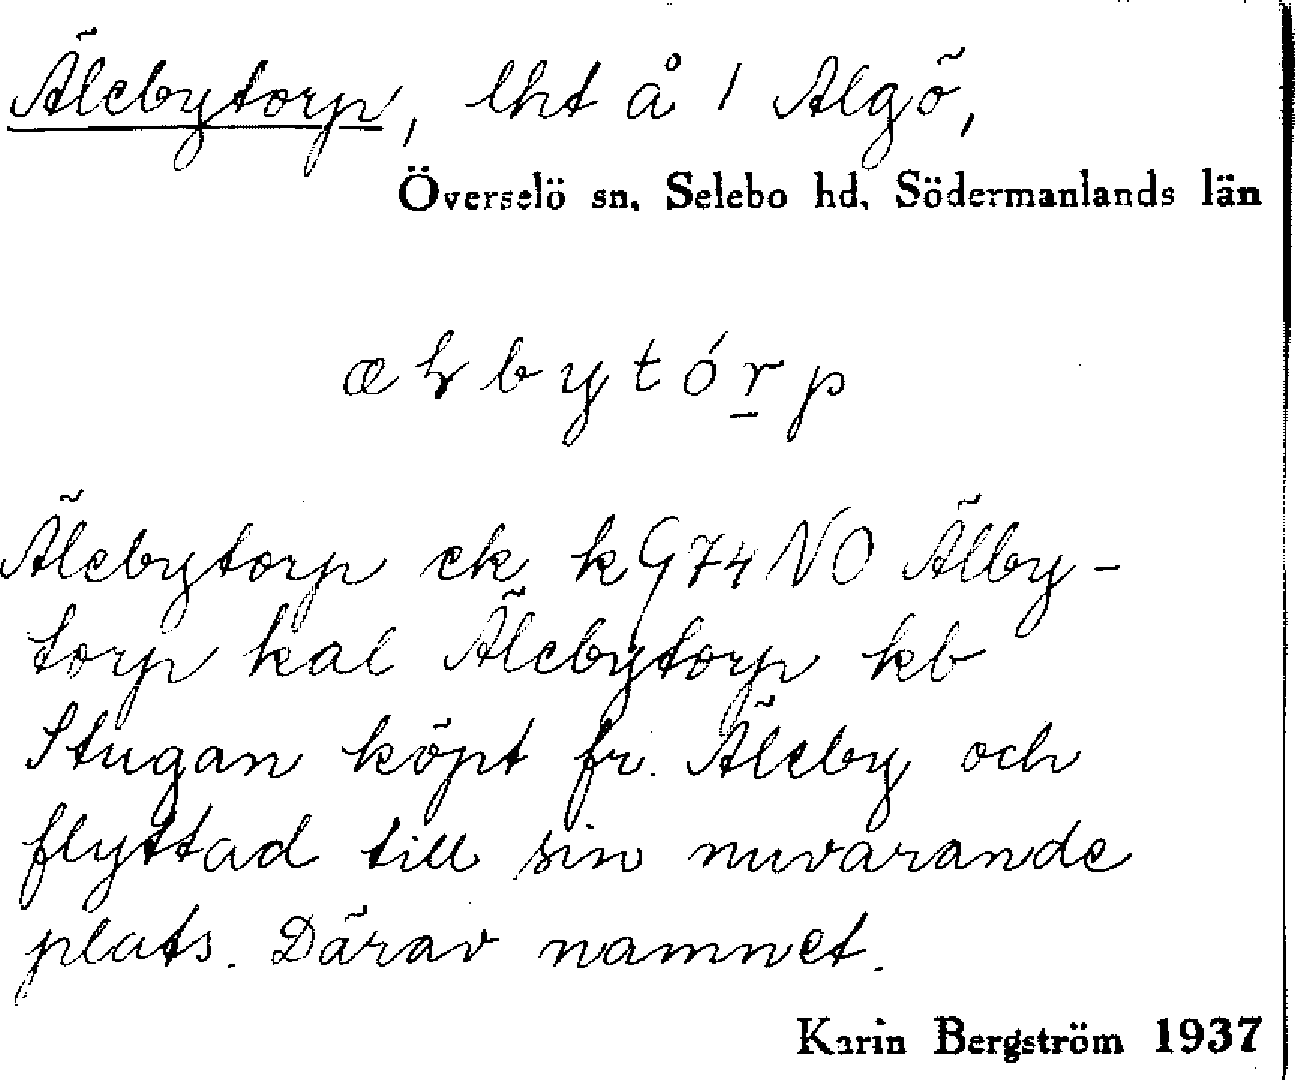 Älebytorp, lht å 1 Algö,
Överselö sn, Selebo hd, Södermanlands län
bytórp
Älebytorp ek kG74NO Älby-
torp kal Älebytorp kb
Stugan köpt fr. Äleby och
flyttad till sin nuvarande
plats. Därav namnet.
Karin Bergström 1937